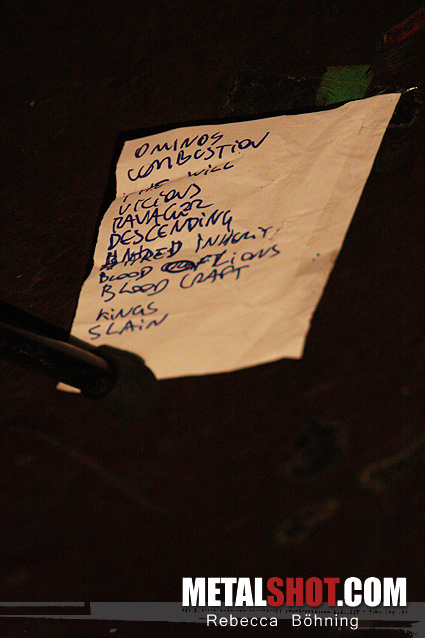 OMINOS
COMBUSTION
THE WILL
VICIOUS
RAVAGER
DESCENDING
HATRED INHERIT
BLOOD OF LIONS
BLOOD CRAFT
KINGS
SLAIN
METALSHOT.COM
Rebecca Böhning